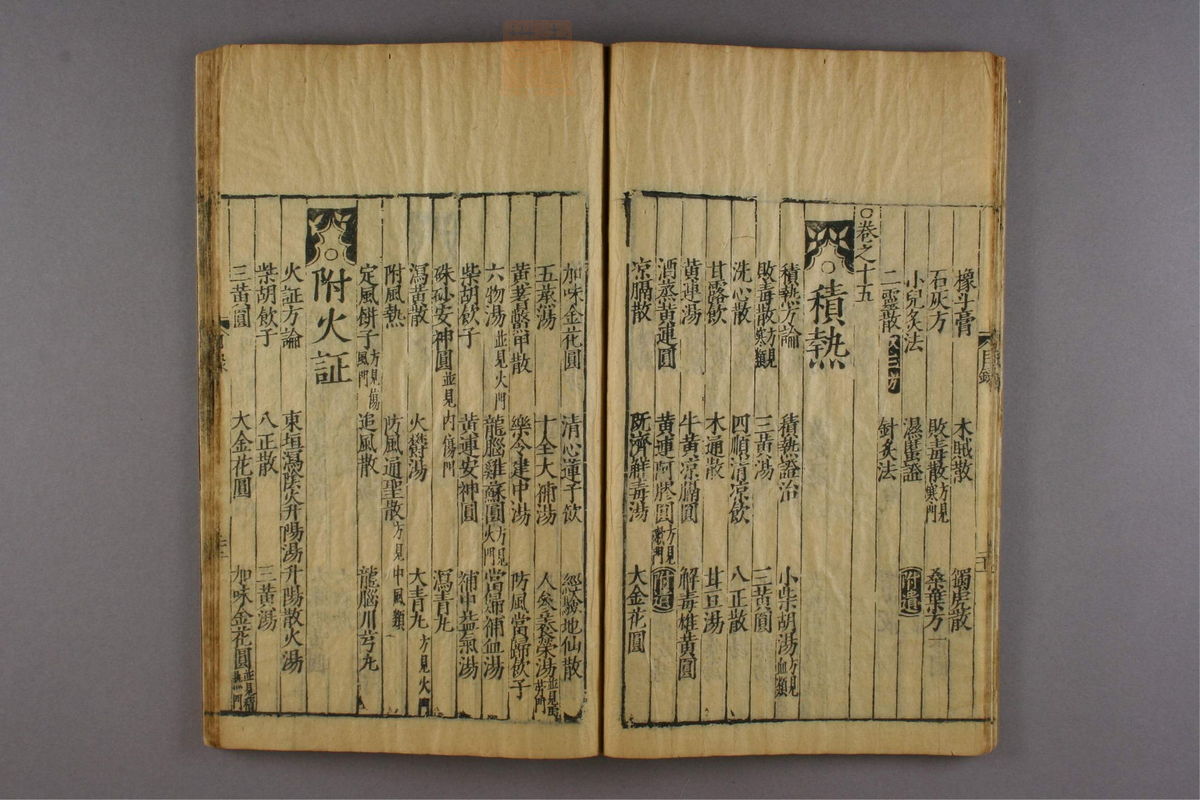 橡斗膏 木賊散 獨虎散
石灰方 敗毒散方見寒門 桑葉方
小兒灸法 濕䘌證 附遺
二靈散 針灸法
○卷之十五
積熱
積熱方論 積熱證治 小柴胡湯方見血類
敗毒散方見寒類 三黃湯 三黃圓
洗心散 四順清凉飲 八正散
甘露飲 木通散 甘豆湯
黃連湯 牛黃凉膈圓 解毒雄黃圓
酒蒸黃連圓 黃連阿膠圓方見嗽門 附遺
凉膈散 既濟解毒湯 大金花圓
加味金花圓 清心蓮子飲 經驗地仙散
五蒸湯 十全大補湯 人參養榮湯並見
黃耆鱉甲散 樂令建中湯 防風當歸飲子
六物湯並見火門 龍腦雞蘇圓方見火門 當歸補血湯
柴胡飲子 黃連安神圓 補中益氣湯
硃砂安神圓並見內傷門 瀉青丸
瀉黃散 火鬱湯 大青丸方見火門
附風熱 防風通聖散方見中風類
定風餅子方見傷風門 追風散 龍腦川芎丸
附火証
火証方論 東垣瀉陰火升陽湯 升陽散火湯
柴胡飲子 八正散 三黃湯
三黃圓 大金花圓 加味金花圓並見積熱門
目錄